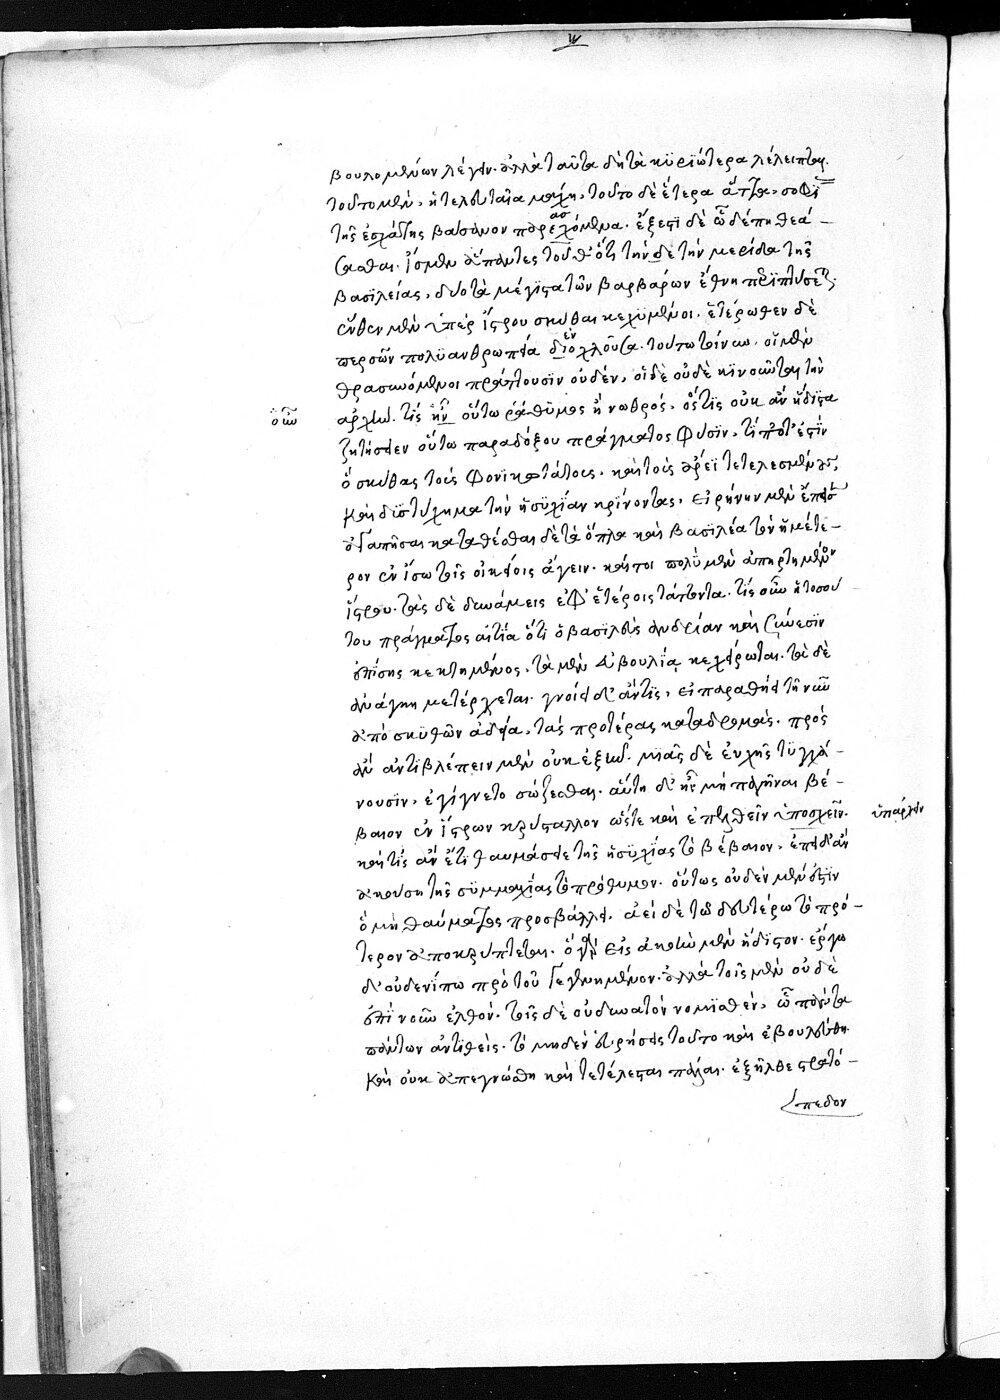 βουλομένων λέγειν. ἀλλὰ ταῦτα δὴ τὰ κυριώτερα λέλειπται.
τοῦτο μὲν, ἡ τελευταία μάχη, τοῦτο δὲ ἕτερα ἄττα, σοφί
τῆς ἐσχάτης βάσανον παρεχόμενα. ἔξεστι δὲ ὧδέ πη θεά-
σασθαι. ἴσμεν ἅπαντες τοῦθ' ὅτι τήνδε τὴν μερίδα τῆς
βασιλείας, δύο τὰ μέγιστα τῶν βαρβάρων ἔθνη περιπτύσσει.
ἔνθεν μὲν ὑπὲρ ἴστρου σκύθαι κεχυμένοι. ἑτέρωθεν δὲ
περσῶν πολυανθρωπία διοχλοῦσα. τούτω τοίνυν. οἱ μὲν
θρασυνόμενοι πράττουσιν οὐδέν, οἱ δὲ οὐδὲ κινοῦνται τὴν
ἀρχήν. τίς ἦν οὕτω ῥάθυμος ἢ νωθρός, ὅστις οὐκ ἂν ἥδιστα
ζητήσειεν οὕτω παραδόξου πράγματος φύσιν, τί ποτ' ἐστὶν
ὃ σκύθας τοὺς φονικωτάτους, καὶ τοὺς ἄρει τετελεσμένους,
καὶ δυστύχημα τὴν ἡσυχίαν κρίνοντας, εἰρήνην μὲν ἔπεισ
ἀγαπῆσαι καταθέσθαι δὲ τὰ ὅπλα καὶ βασιλέα τὸν ἡμέτε-
ρον ἐν ἴσω τοῖς οἰκείοις ἄγειν. καίτοι πολὺ μὲν ἀπηρτημένον
ἴστρου. τὰς δὲ δυνάμεις ἐφ' ἑτέροις τάττοντα. τίς οὖν ἡ τοσού
του πράγματος αἰτία ὅτι ὁ βασιλεὺς ἀνδρίαν καὶ σύνεσιν
ἐπίσης κεκτημένος, τὰ μὲν εὐβουλίᾳ κεχείρωται. τὰ δὲ
ἀνάγκη μετέρχεται. γνοίη δ' ἄν τις, εἰ παραθείη τῆ νῦν
ἀπὸ σκυθῶν ἀδεία, τὰς προτέρας καταδρομάς. πρὸς
ἃς ἀντιβλέπειν μὲν οὐκ ἐξῆν. μιᾶς δὲ εὐχῆς τυγχά-
νουσιν, ἐγίγνετο σώζεσθαι. αὕτη δ' ἦν μὴ παγῆναι βέ-
βαιον ἐν ἴστρω κρύσταλλον ὥστε καὶ ἐπελθεῖν ὑποσχεῖν.
ὑπάρχειν
καὶ τίς ἂν ἔτι θαυμάσειε τῆς ἡσυχίας τὸ βέβαιον, ἐπειδ' ἂν
ἀκούση τῆς συμμαχίας τὸ πρόθυμον. οὕτως οὐδὲν μέν ἐστιν
ὃ μὴ θαύματος προσβάλλει. ἀεὶ δὲ τῶ δευτέρω τὸ πρό-
τερον ἀποκρύπτεται. ὃ γὰρ εἰς ἀκοὴν μὲν ἥδιστον. ἔργω
δ' οὐδενί πω πρὸ τοῦ γεγενημένον. ἀλλὰ τοῖς μὲν οὐδὲ
ἐπὶ νοῦν ἐλθόν. τοῖς δὲ οὐ δυνατὸν νομισθέν, ὧ πάντα
πάντων ἀντιθεὶς. τὸ μηδὲν εὑρήσεις τοῦτο καὶ ἐβουλεύθη
καὶ οὐκ ἀπεγνώσθη καὶ τετέλεσται πάλαι. ἐξῆλθε στρατό-
πεδον